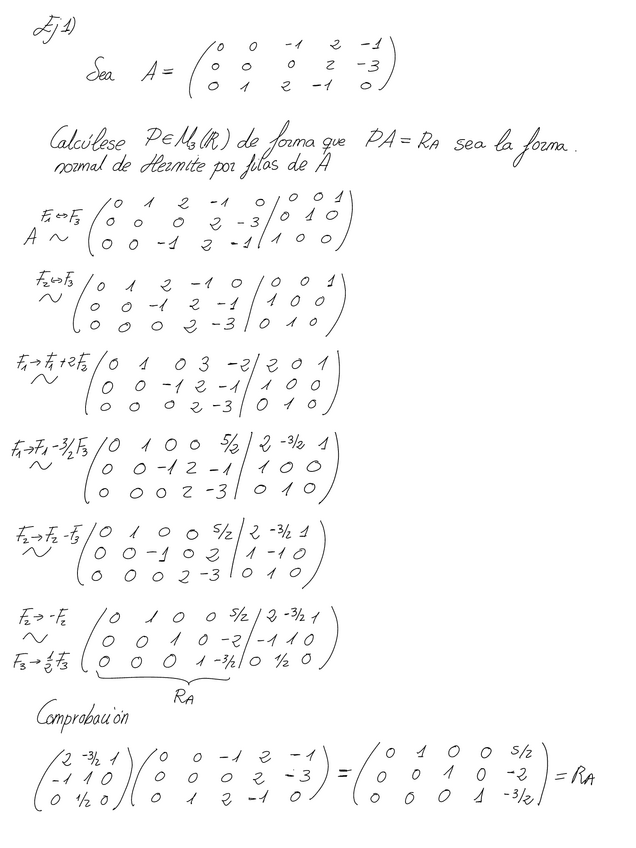 Ej 1)
Sea A = ( 0 0 -1 2 -1
0 0 0 2 -3
0 1 2 -1 0 )
Calcúlese P∈M₃(ℝ) de forma que PA = R_A sea la forma.
normal de Hermite por filas de A
F₁↔F₃
A ~ ( 0 1 2 -1 0 | 0 0 1
0 0 0 2 -3 | 0 1 0
0 0 -1 2 -1 | 1 0 0 )
F₂↔F₃
~ ( 0 1 2 -1 0 | 0 0 1
0 0 -1 2 -1 | 1 0 0
0 0 0 2 -3 | 0 1 0 )
F₁→F₁+2F₂
~ ( 0 1 0 3 -2 | 2 0 1
0 0 -1 2 -1 | 1 0 0
0 0 0 2 -3 | 0 1 0 )
F₁→F₁-3/2F₃
~ ( 0 1 0 0 5/2 | 2 -3/2 1
0 0 -1 2 -1 | 1 0 0
0 0 0 2 -3 | 0 1 0 )
F₂→F₂-F₃
~ ( 0 1 0 0 5/2 | 2 -3/2 1
0 0 -1 0 2 | 1 -1 0
0 0 0 2 -3 | 0 1 0 )
F₂→-F₂
~
F₃→1/2F₃
( 0 1 0 0 5/2 | 2 -3/2 1
0 0 1 0 -2 | -1 1 0
0 0 0 1 -3/2 | 0 1/2 0 )
R_A
Comprobación
( 2 -3/2 1 ) ( 0 0 -1 2 -1 ) ( 0 1 0 0 5/2 )
( -1 1 0 ) ( 0 0 0 2 -3 ) = ( 0 0 1 0 -2 ) = R_A
( 0 1/2 0 ) ( 0 1 2 -1 0 ) ( 0 0 0 1 -3/2 )